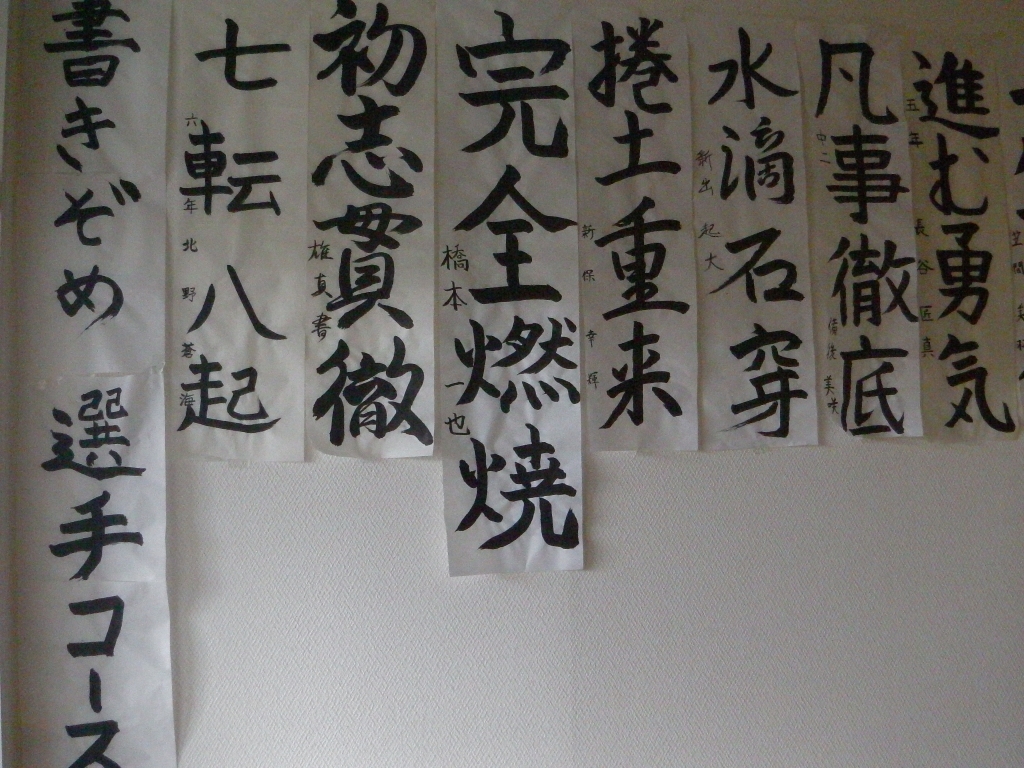 進む勇気
五年 長谷匠真
凡事徹底
中二
美咲
水滴石穿
新出起大
捲土重来
新保幸輝
完全燃焼
橋本一也
初志貫徹
雄真書
七転八起
六年 北野蒼海
書きぞめ 選手コース